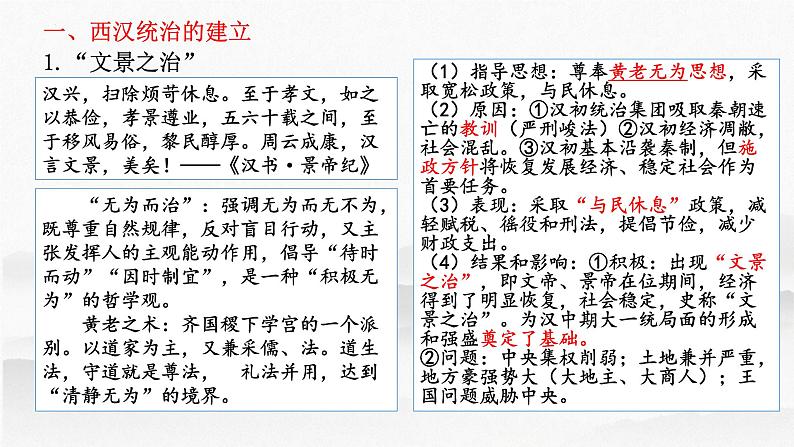 一、西汉统治的建立
1.“文景之治”
汉兴，扫除烦苛休息。至于孝文，如之
以恭俭，孝景遵业，五六十载之间，至
于移风易俗，黎民醇厚。周云成康，汉
言文景，美矣！——《汉书·景帝纪》
“无为而治”：强调无为而无不为，
既尊重自然规律，反对盲目行动，又主
张发挥人的主观能动作用，倡导“待时
而动”“因时制宜”，是一种“积极无
为”的哲学观。
黄老之术：齐国稷下学宫的一个派
别。以道家为主，又兼采儒、法。道生
法，守道就是尊法， 礼法并用，达到
“清静无为”的境界。
（1）指导思想：尊奉黄老无为思想，采
取宽松政策，与民休息。
（2）原因：①汉初统治集团吸取秦朝速
亡的教训（严刑峻法）②汉初经济凋敝，
社会混乱。③汉初基本沿袭秦制，但施
政方针将恢复发展经济、稳定社会作为
首要任务。
（3）表现：采取“与民休息”政策，减
轻赋税、徭役和刑法，提倡节俭，减少
财政支出。
（4）结果和影响：①积极：出现“文景
之治”，即文帝、景帝在位期间，经济
得到了明显恢复，社会稳定，史称“文
景之治”。为汉中期大一统局面的形成
和强盛奠定了基础。
②问题：中央集权削弱；土地兼并严重，
地方豪强势大（大地主、大商人）；王
国问题威胁中央。